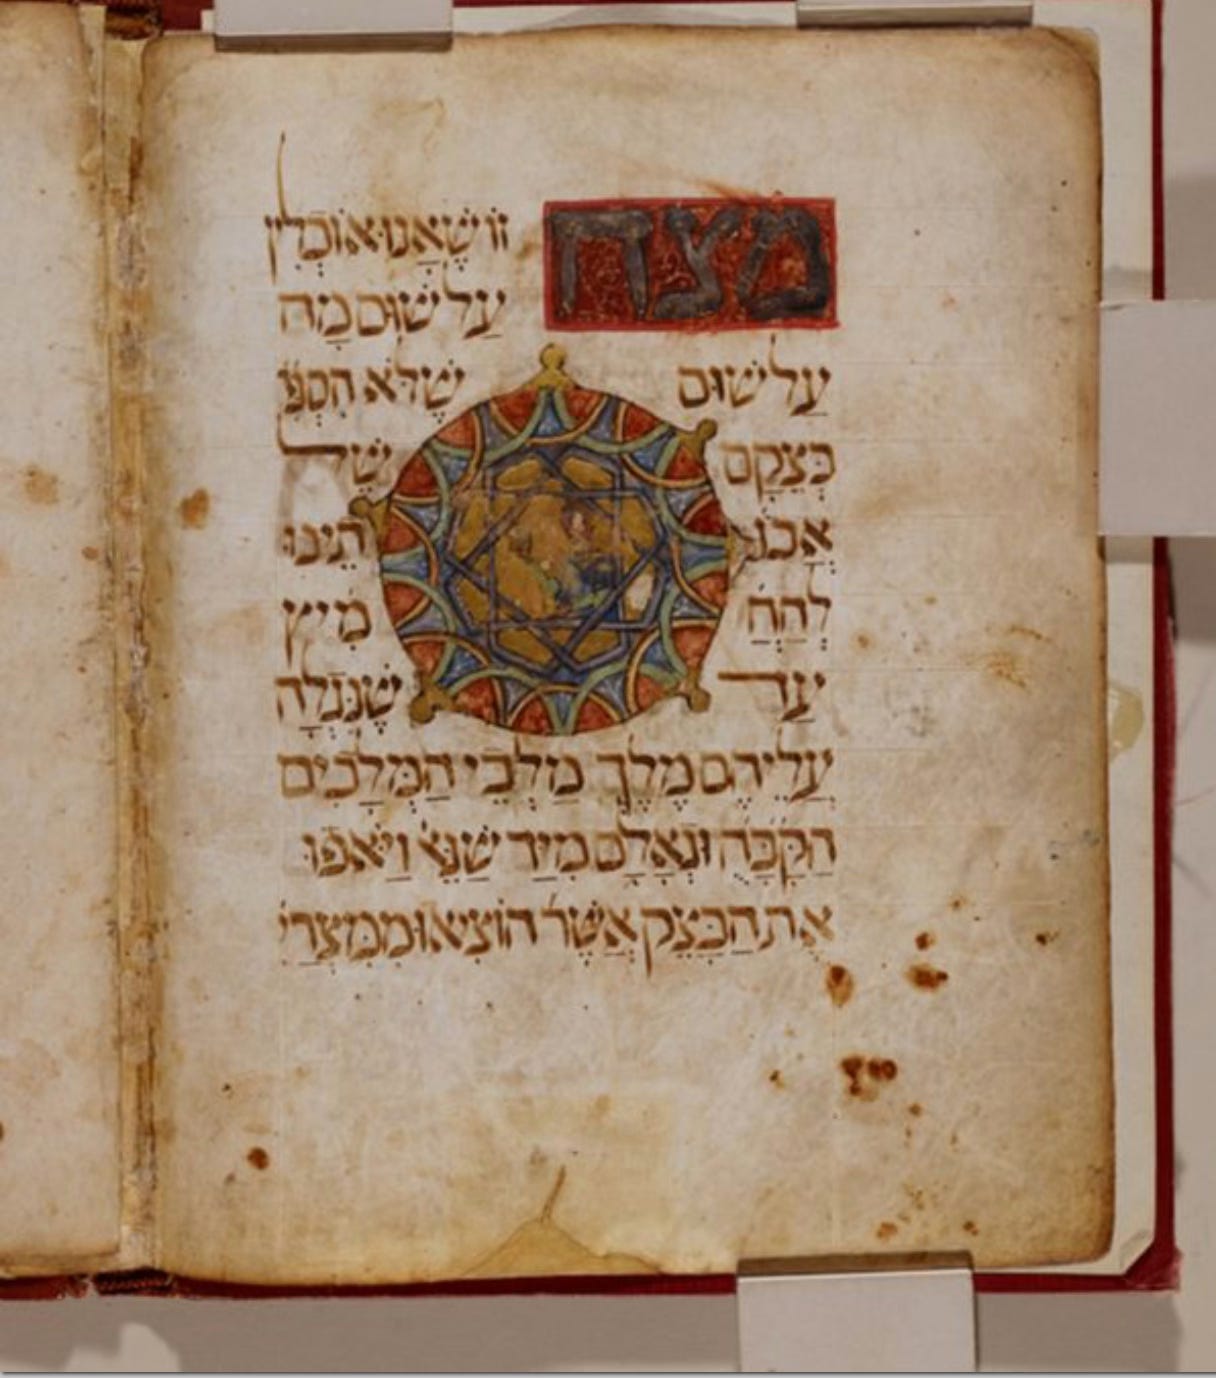 מצה זוֹ שֶׁאָנוּ אוֹכְלִין
עַל שׁוּם מָה
עַל שׁוּם שֶׁלֹּא הִסְפִּ
בְּצֵקָם שֶׁל
אֲבוֹ תֵינוּ
לְהַחְ מִיץ
עַד שֶׁנִּגְלָה
עֲלֵיהֶם מֶלֶךְ מַלְכֵי הַמְּלָכִים
הַקָּבָּ״ה וּגְאָלָם מִיַּד שֶׁנֶּ׳ וַיֹּאפוּ
אֶת הַבָּצֵק אֲשֶׁר הוֹצִיאוּ מִמִּצְרַיִ